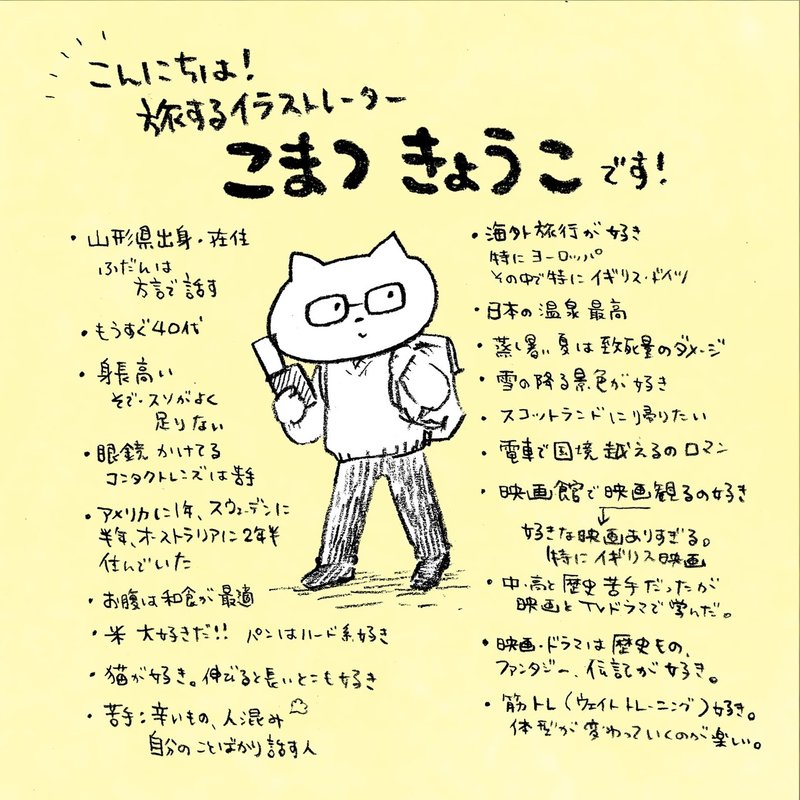 こんにちは!
旅するイラストレーター
こまつ きょうこ です!
・山形県出身・在住
ふだんは
方言で話す
・もうすぐ40代
・身長高い
そで・スソがよく
足りない
・眼鏡かけてる
コンタクトレンズは苦手
・アメリカに1年、スウェーデンに
半年、オーストラリアに2年半
住んでいた
・お腹は和食が最適
・米 大好きだ!! パンはハード系好き
・猫が好き。伸びると長いとこも好き
・苦手:辛いもの、人混み
自分のことばかり話す人
・海外旅行が好き
特にヨーロッパ
その中で特にイギリス・ドイツ
・日本の温泉最高
・蒸し暑い夏は致死量のダメージ
・雪の降る景色が好き
・スコットランドに帰りたい
・電車で国境越えるのロマン
・映画館で映画観るの好き
好きな映画ありすぎる。
特にイギリス映画
・中・高と歴史苦手だったが
映画とTVドラマで学んだ。
・映画・ドラマは歴史もの、
ファンタジー、伝記が好き。
・筋トレ(ウェイトトレーニング)好き。
体型が変わっていくのが楽しい。